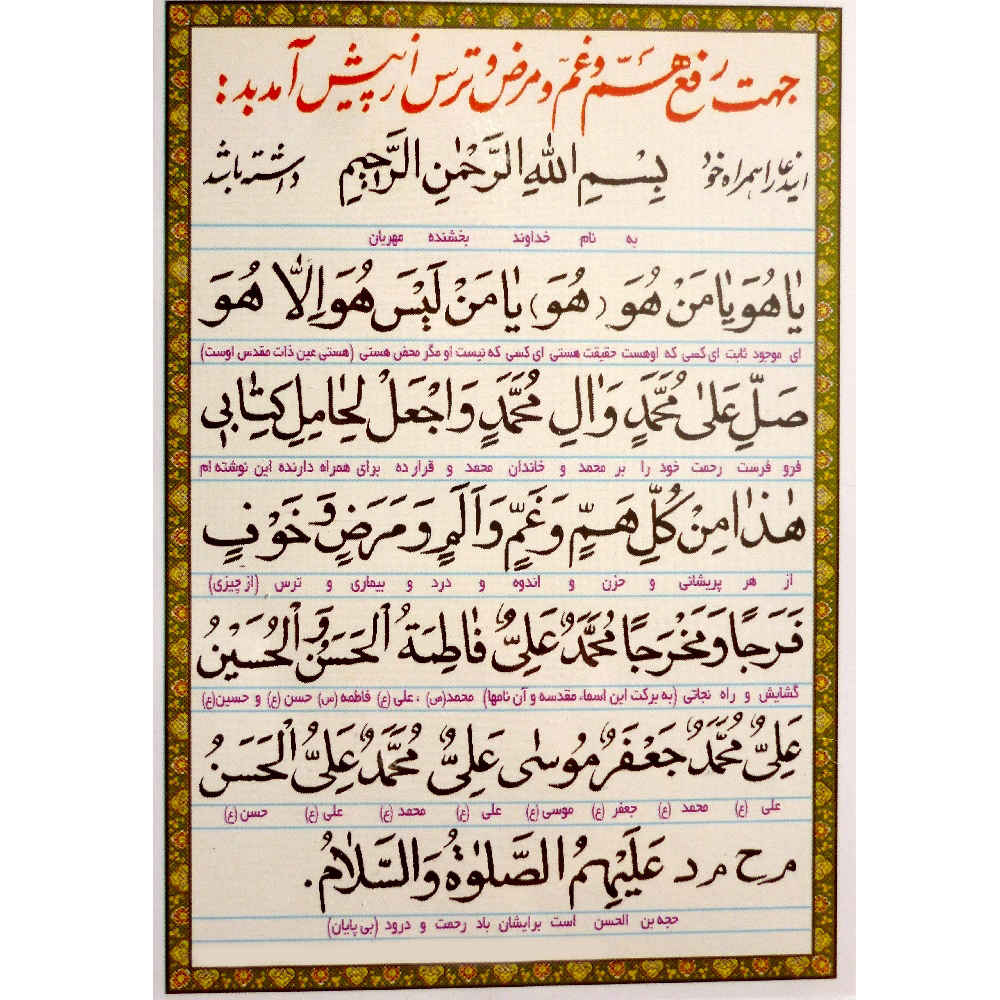 جهت رفع هَمّ و غمّ و مرض و ترس از پیش آمد بد :
ایندعا را همراه خود بِسْمِ اللهِ الرَّحْمٰنِ الرَّحیمِ داشته باشد
به نام خداوند بخشنده مهربان
یٰا هُوَ یٰا مَنْ هُوَ (هُوَ) یٰا مَنْ لَیْسَ هُوَ اِلّٰا هُوَ
ای موجود ثابت ای کسی که اوهست حقیقت هستی ای کسی که نیست او مگر محض هستی (هستی عین ذات مقدس اوست)
صَلِّ عَلیٰ مُحَمَّدٍ وَ اٰلِ مُحَمَّدٍ وَ اجْعَلْ لِحٰامِلِ کِتٰابی
فرو فرست رحمت خود را بر محمد و خاندان محمد و قرار ده برای همراه دارنده این نوشته ام
هٰذٰا مِنْ کُلِّ هَمٍّ وَ غَمٍّ وَ اَلَمٍ وَ مَرَضٍ وَ خَوْفٍ
از هر پریشانی و حزن و اندوه و درد و بیماری و ترس (از چیزی)
فَرَجًا وَ مَخْرَجًا مُحَمَّدٌ عَلِیٌّ فٰاطِمَةُ الْحَسَنُ وَ الْحُسَیْنُ
گشایش و راه نجاتی (به برکت این اسماء مقدسه و آن نامها) محمد(ص) ، علی(ع) فاطمه(س) حسن(ع) و حسین(ع)
عَلِیٌّ مُحَمَّدٌ جَعْفَرٌ مُوسٰی عَلِیٌّ مُحَمَّدٌ عَلِیٌّ الْحَسَنُ
علی (ع) محمد (ع) جعفر (ع) موسی(ع) علی (ع) محمد (ع) علی (ع) حسن(ع)
م ح م د عَلَیْهِمُ الصَّلوٰةُ وَ السَّلٰامُ.
حجه بن الحسن است برایشان باد رحمت و درود (بی پایان)